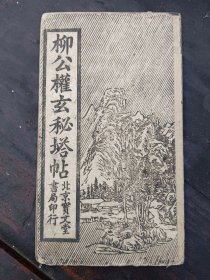 柳公權玄秘塔帖
北京寶文堂
書局印行